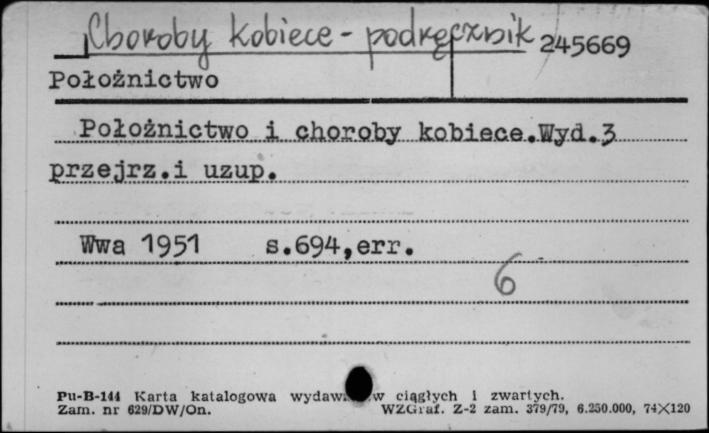 Choroby kobiece - podręcznik 245669
Położnictwo
Położnictwo i choroby kobiece.Wyd.3
przejrz.i uzup.
Wwa 1951 s.694,err.
6
Pu-B-144 Karta katalogowa ciągłych i zwartych.
Zam. nr 629/DW/On. WZGraf. Z-2 zam. 379/79, 6.250.000, 74×120